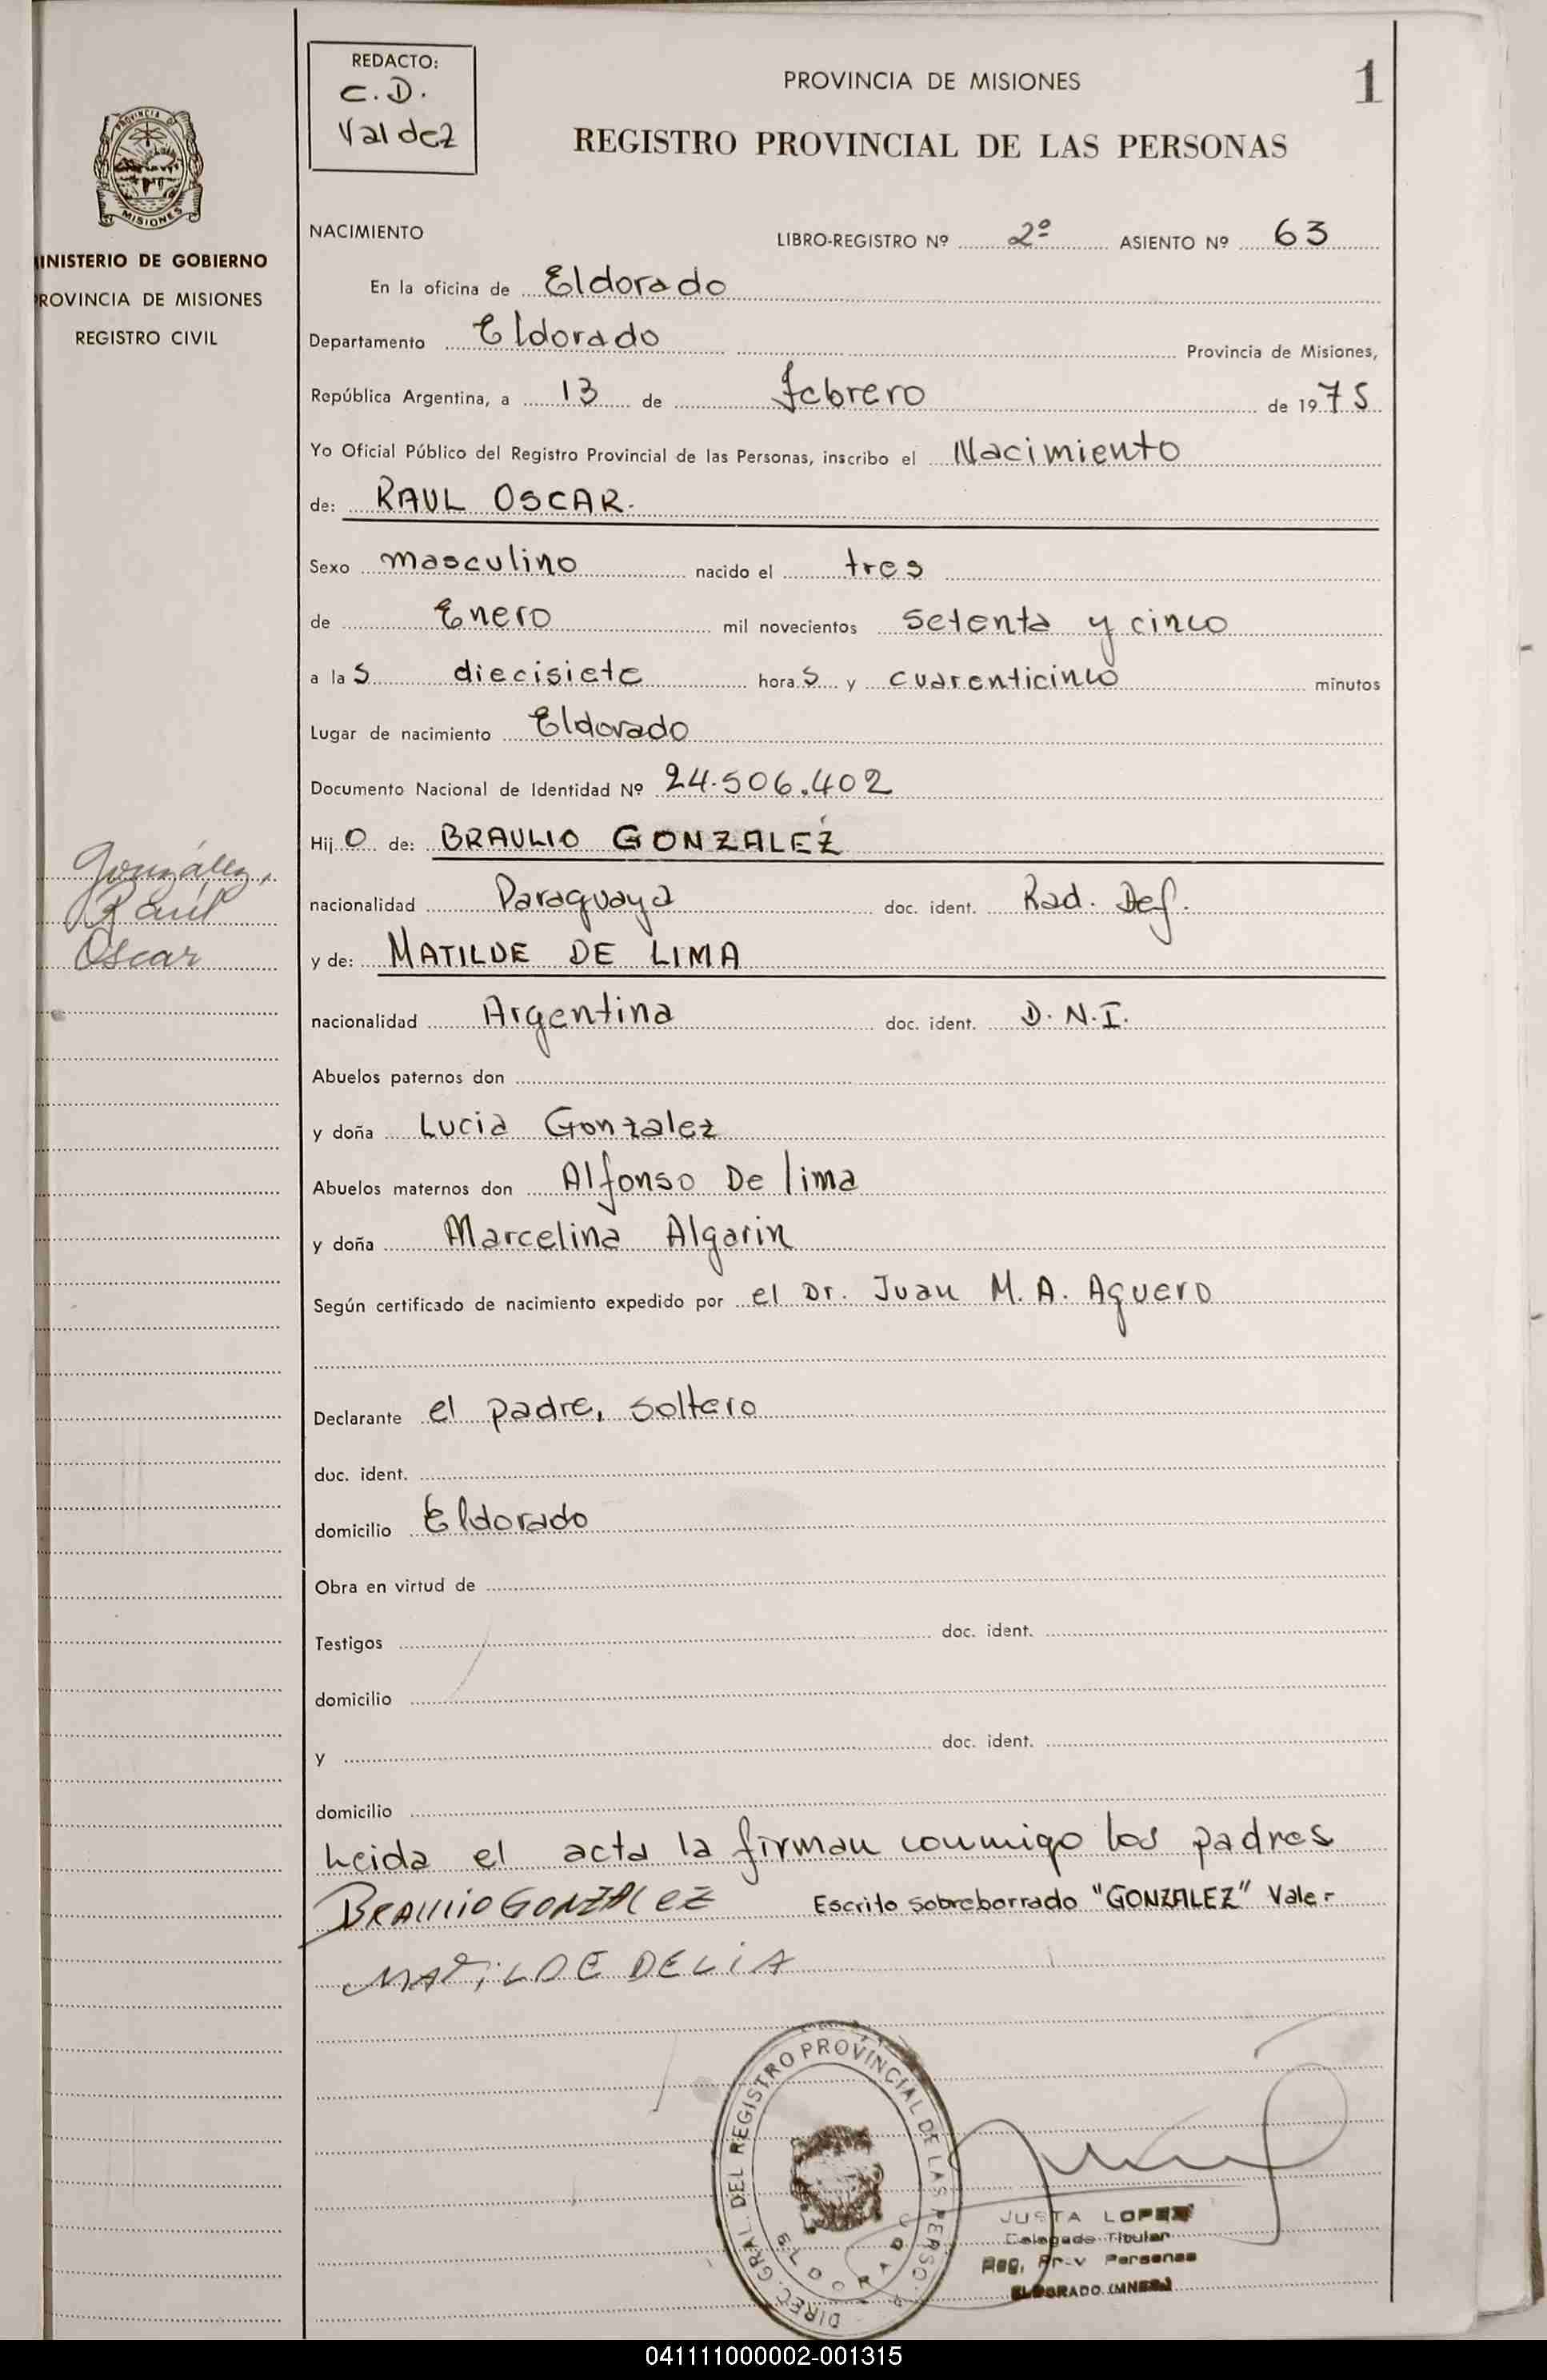 REDACTO:
C.D.
Valdez
PROVINCIA DE MISIONES
1
REGISTRO PROVINCIAL DE LAS PERSONAS
PROVINCIA DE
MISIONES
INISTERIO DE GOBIERNO
ROVINCIA DE MISIONES
REGISTRO CIVIL
NACIMIENTO
LIBRO-REGISTRO Nº 2º ASIENTO Nº 63
En la oficina de Eldorado
Departamento Eldorado Provincia de Misiones,
República Argentina, a 13 de febrero de 1975
Yo Oficial Público del Registro Provincial de las Personas, inscribo el Nacimiento
de: RAUL OSCAR.
Sexo masculino nacido el tres
de Enero mil novecientos setenta y cinco
a las diecisiete horas y cuarenticinco minutos
Lugar de nacimiento Eldorado
Documento Nacional de Identidad Nº 24.506.402
Hijo de: BRAULIO GONZALEZ
González,
Raúl
Oscar
nacionalidad Paraguaya doc. ident. Rad. Def.
y de: MATILDE DE LIMA
nacionalidad Argentina doc. ident. D.N.I.
Abuelos paternos don
y doña Lucia Gonzalez
Abuelos maternos don Alfonso De lima
y doña Marcelina Algarin
Según certificado de nacimiento expedido por el Dr. Juan M. A. Aguero
Declarante el padre, soltero
doc. ident.
domicilio Eldorado
Obra en virtud de
Testigos doc. ident.
domicilio
y doc. ident.
domicilio
Leida el acta la firman conmigo los padres
BRAULIO GONZALEZ Escrito sobreborrado "GONZALEZ" Vale-
MATILDE DELIA
DIREC. GRAL. DEL REGISTRO PROVINCIAL DE LAS PERSO.
ELDORADO
JUSTA LOPEZ
Delegado Titular
Reg. Prov Personas
ELDORADO (MNES.)
041111000002-001315